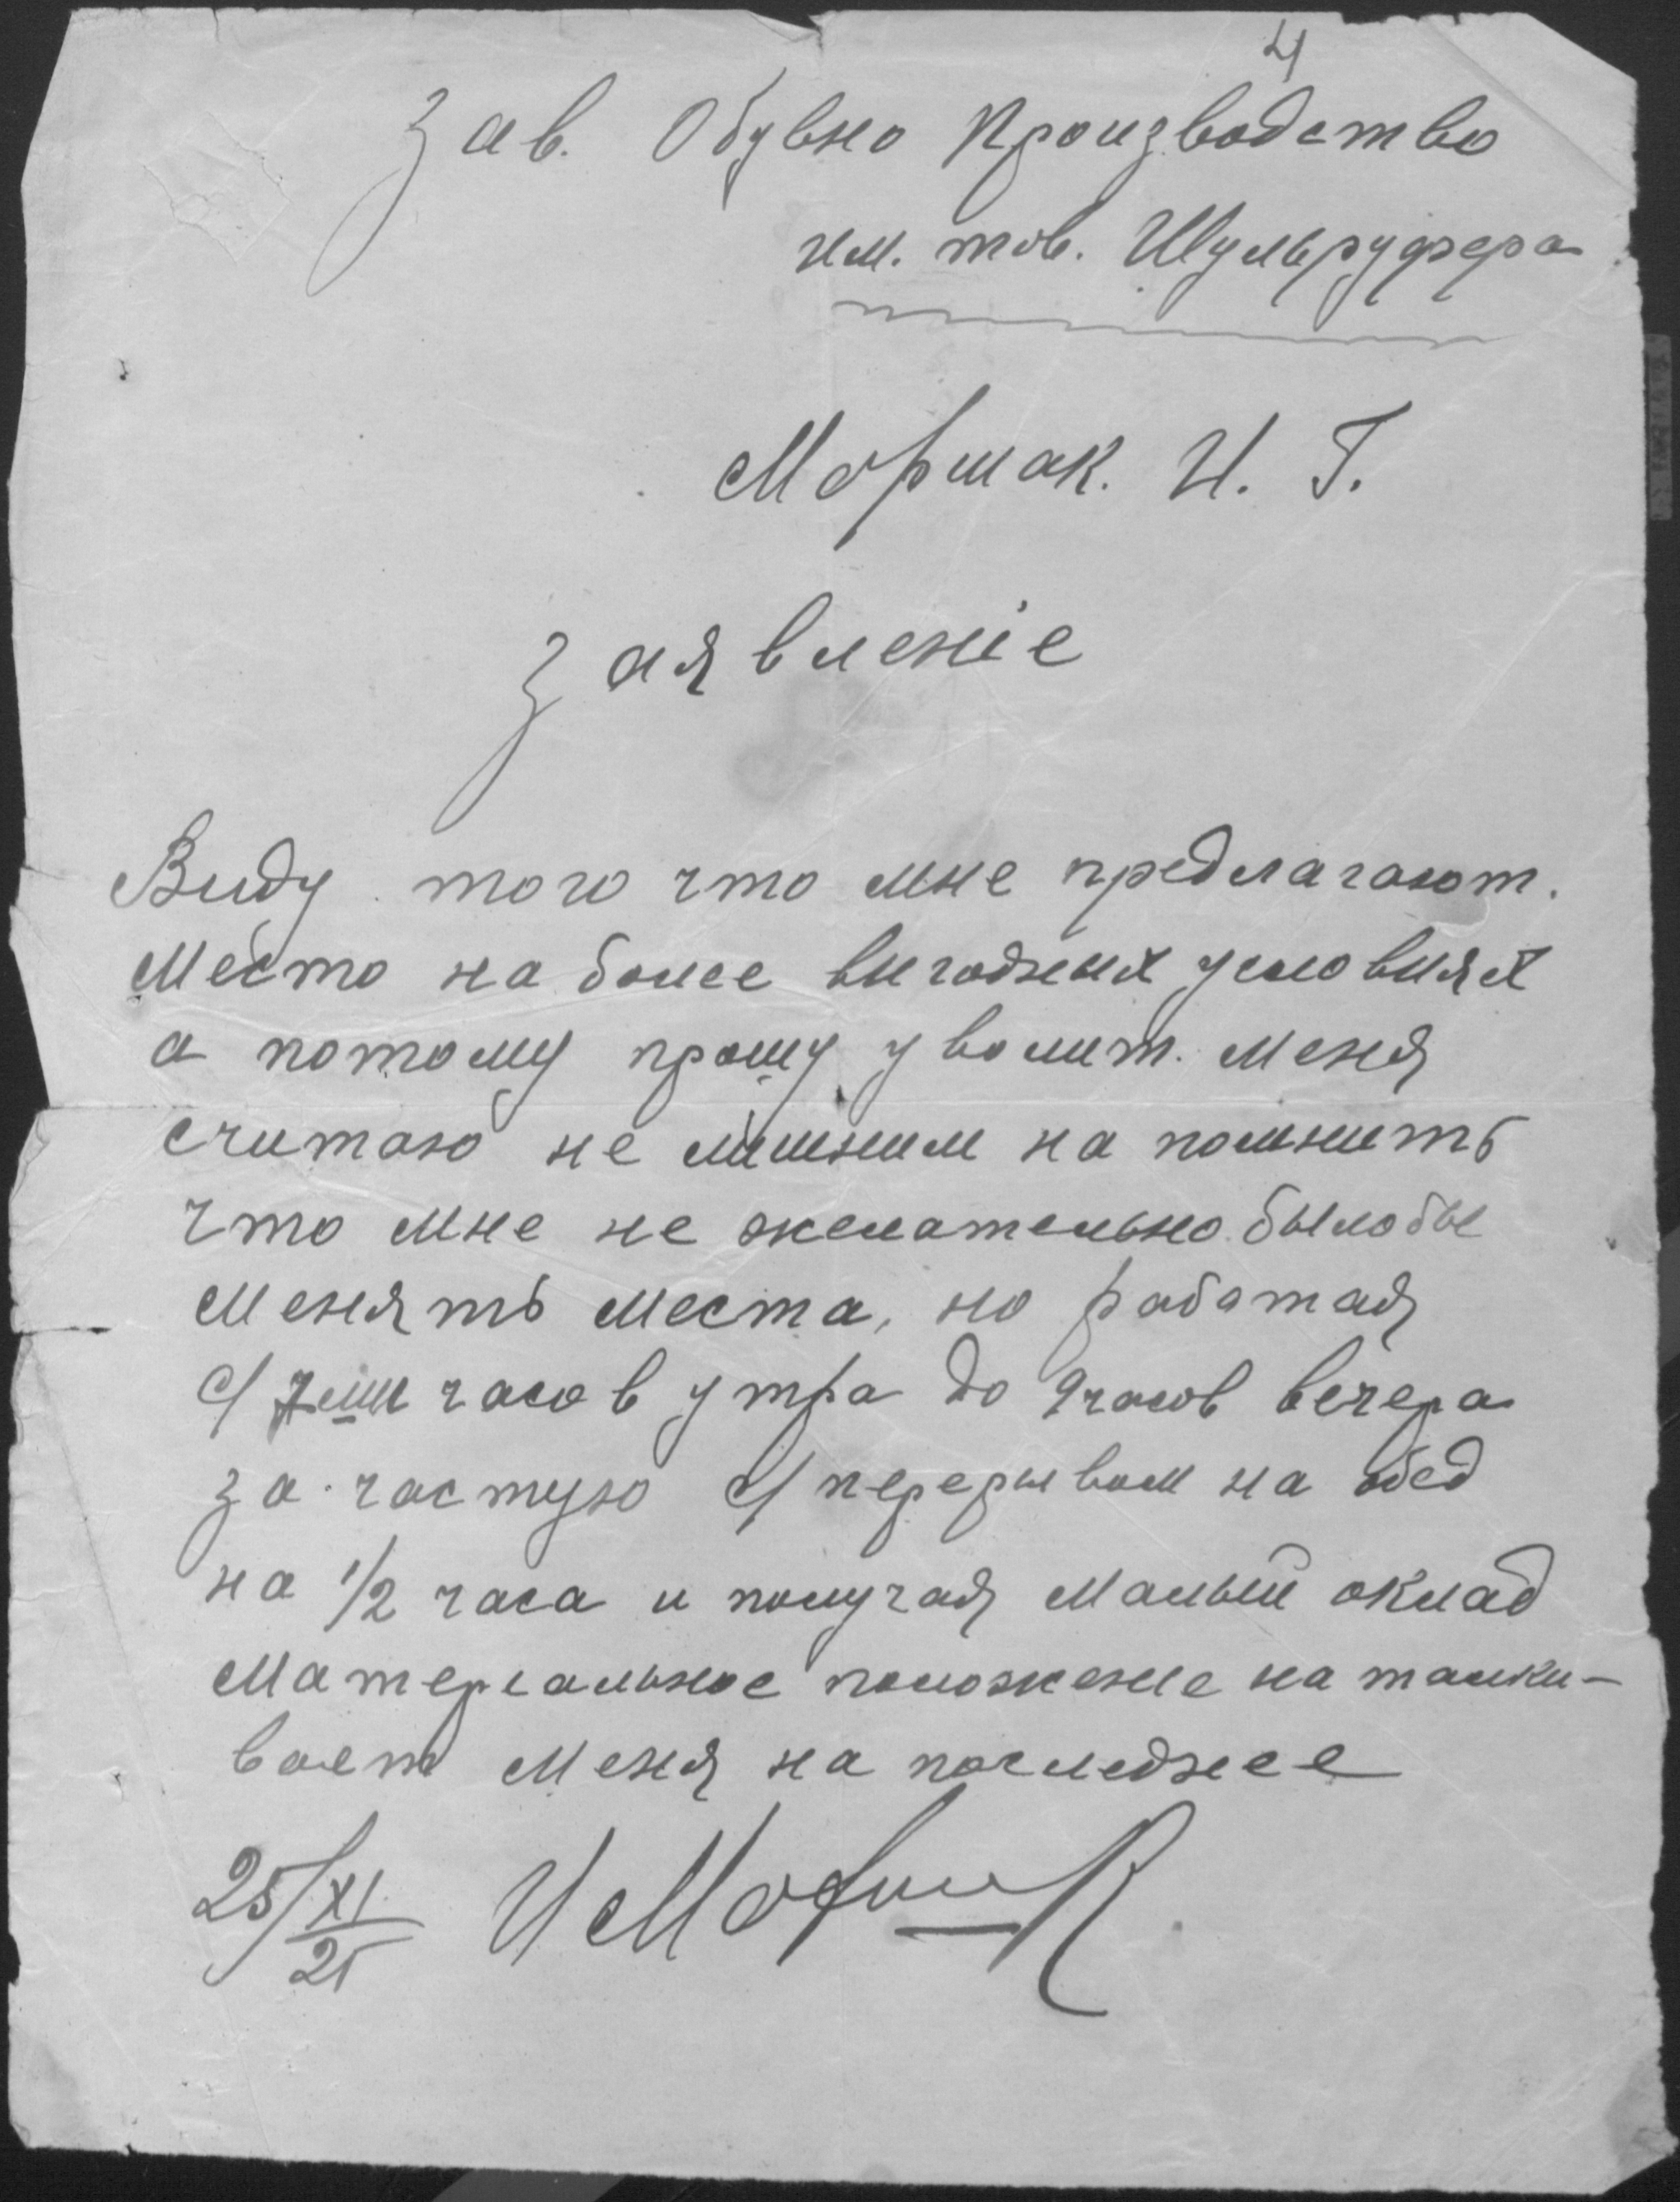 4
Зав. Обувно Производство
им. тов. Шульруфера
Моршак. И. Г.
Заявленіе
Виду того что мне предлагают.
Место на более вигодных условиях
а потому прошу уволит. меня
считаю не лишним на помнить
что мне не желательно было бы
менять места, но работая
с/ 7ми часов утра до 9 часов вечера
за частую с/ перерывом на обед
на 1/2 часа и получая малый оклад
Материальное положение на талки-
вает меня на последнее
25/XI 21 И Моршак